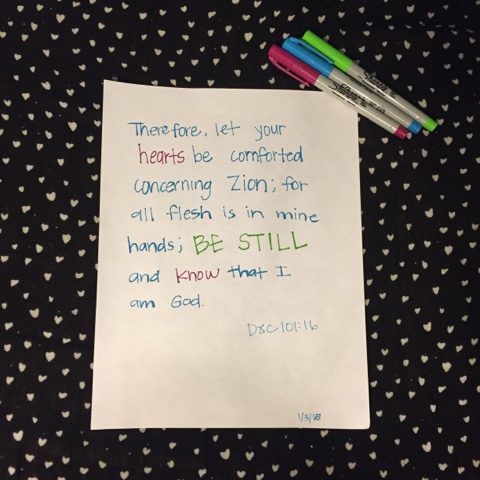 Therefore, let your
hearts be comforted
concerning Zion; for
all flesh is in mine
hands; BE STILL
and know that I
am God.
D&C 101:16
1/3/18
Sharpie
Sharpie
Sharpie